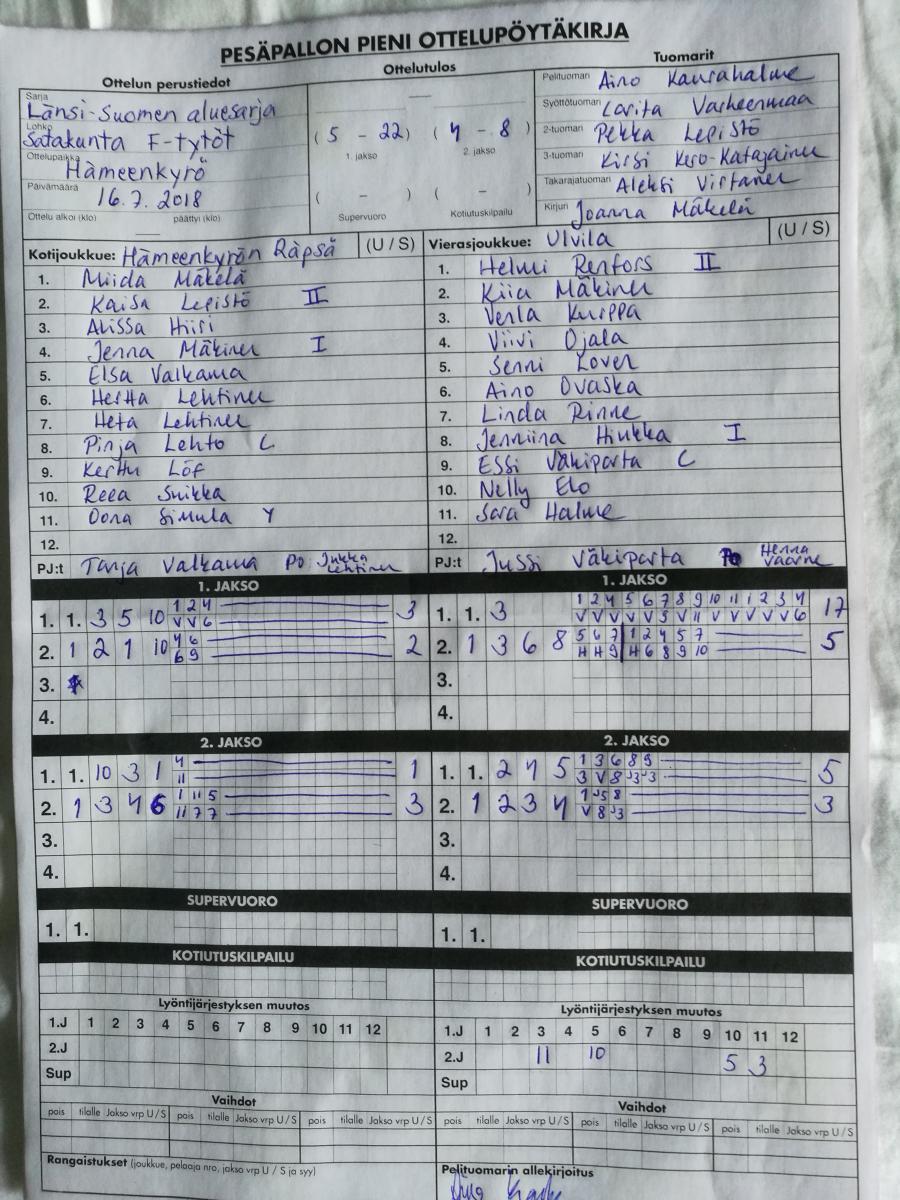 PESÄPALLON PIENI OTTELUPÖYTÄKIRJA
Ottelun perustiedot
Sarja
Länsi-Suomen aluesarja
Lohko
Satakunta F-tytöt
Ottelupaikka
Hämeenkyrö
Päivämäärä
16.7.2018
Ottelu alkoi (klo) päättyi (klo)
Ottelutulos
(5 - 22) (4 - 8)
1. jakso 2. jakso
( - ) ( - )
Supervuoro Kotiutuskilpailu
Tuomarit
Pelituomari Aino Kaurahalme
Syöttötuomari
2-tuomari Pekka Lepistö
3-tuomari Kirsi
Takarajatuomari Aleksi Virtanen
Kirjuri Joanna Mäkelä
Kotijoukkue: Hämeenkyrön Räpsä (U / S)
1. Miida Mäkelä
2. Kaisa Lepistö II
3. Alissa Hiiri
4. Jenna Mäkinen I
5. Elsa Valkama
6. Hertta Lehtinen
7. Heta Lehtinen
8. Pinja Lehto C
9. Kerttu Löf
10. Reea Suikka
11. Oona Simula Y
12.
PJ:t Tanja Valkama PO: Jukka Lehtinen
Vierasjoukkue: Ulvila (U / S)
1. Helmi Renfors II
2. Kiia Mäkinen
3. Venla Kurppa
4. Viivi Ojala
5. Senni Loven
6. Aino Ovaska
7. Linda Rinne
8. Jenniina Hiukka I
9. Essi Väkiparta C
10. Nelly Elo
11. Sara Halme
12.
PJ:t Jussi Väkiparta PO Henna Vaarne
1. JAKSO
1. 1. 3 5 10 1 2 4 3
V V 6
2. 1 2 1 10 4 6 2
6 9
3.
4.
1. JAKSO
1. 1. 3 1 2 4 5 6 7 8 9 10 11 1 2 3 4 17
V V V V V 5 V 11 V V V V V 6
2. 1 3 6 8 5 6 7 1 2 4 5 7 5
H H 9 H 6 8 9 10
3.
4.
2. JAKSO
1. 1. 10 3 1 4 1
11
2. 1 3 4 6 1 11 5 3
11 7 7
3.
4.
2. JAKSO
1. 1. 2 4 5 1 3 6 8 9 5
3 V 8 J3 J3
2. 1 2 3 4 1 J5 8 3
V 8 J3
3.
4.
SUPERVUORO
1. 1.
SUPERVUORO
1. 1.
KOTIUTUSKILPAILU
KOTIUTUSKILPAILU
Lyöntijärjestyksen muutos
1.J 1 2 3 4 5 6 7 8 9 10 11 12
2.J
Sup
Lyöntijärjestyksen muutos
1.J 1 2 3 4 5 6 7 8 9 10 11 12
2.J 11 10 5 3
Sup
Vaihdot
pois tilalle Jakso vrp U / S pois tilalle Jakso vrp U / S pois tilalle Jakso vrp U / S
Vaihdot
pois tilalle Jakso vrp U / S pois tilalle Jakso vrp U / S pois tilalle Jakso vrp U / S
Rangaistukset (joukkue, pelaaja nro, jakso vrp U / S ja syy)
Pelituomarin allekirjoitus